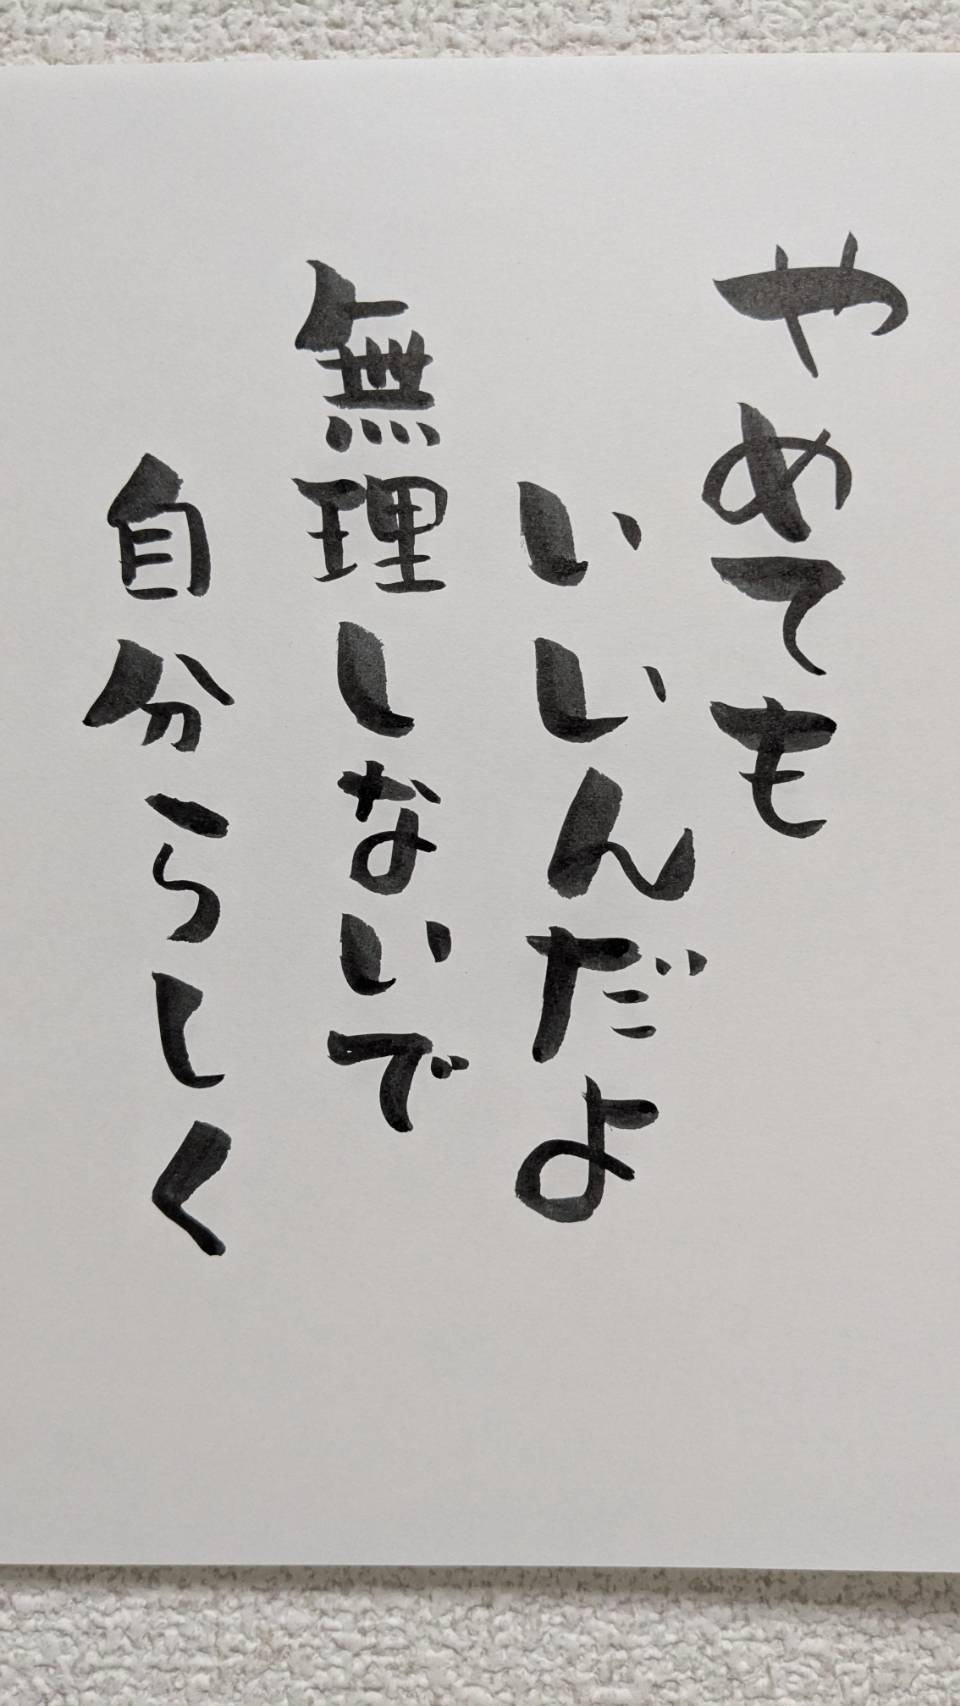 やめても
いいんだよ
無理しないで
自分らしく